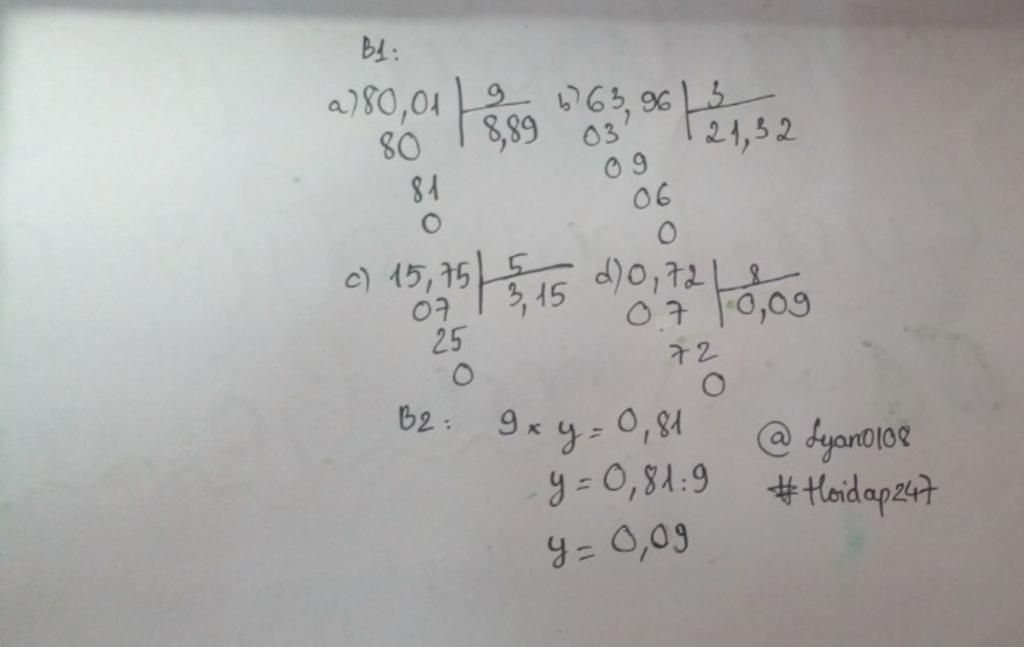 B1:
a) 80,01 | 9 b) 63,96 | 3
80 8,89 03 21,32
81 09
0 06
0
c) 15,75 | 5 d) 0,72 | 8
07 3,15 07 0,09
25 72
0 0
B2: 9 x y = 0,81
y = 0,81:9
y = 0,09
@ Lyan0108
#Hoidap247